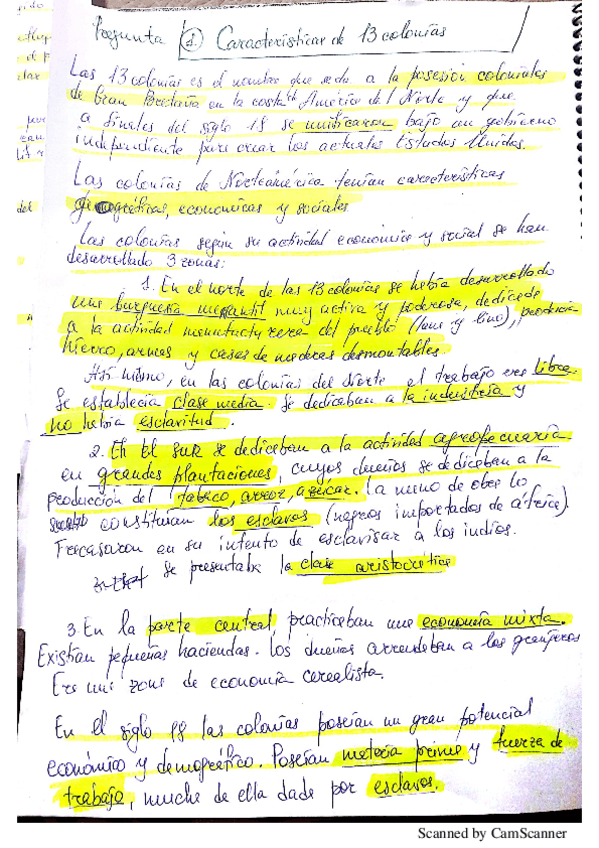 Pregunta 1 Características de 13 colonias
Las 13 colonias es el nombre que se da a la posesión coloniales
de Gran Bretaña en la costa América del Norte y que
a finales del siglo 18 se unificaron bajo un gobierno
independiente para crear los actuales Estados Unidos.
Las colonias de Norteamérica tenían características
geográficas, económicas y sociales
Las colonias según su actividad económica y social se han
desarrollado 3 zonas:
1. En el norte de las 13 colonias se había desarrollado
una burguesía mercantil muy activa y poderosa, dedicada
a la actividad manufacturera del pueblo (lana y lino),
hierro, armas y casas de maderas desmontables.
Así mismo, en las colonias del Norte el trabajo era libre.
Se establecía clase media. Se dedicaban a la industria y
no había esclavitud.
2. En El sur se dedicaban a la actividad agropecuaria
en grandes plantaciones, cuyos dueños se dedicaban a la
producción del tabaco, arroz, azúcar. La mano de obra lo
constituían los esclavos (negros importados de áfrica).
Fracasaron en su intento de esclavisar a los indios.
se presentaba la clase aristocrática
3. En la parte central, practicaban una economía mixta.
Existían pequeñas haciendas. Los dueños arrendaban a los granjeros
Era una zona de economía cerealista.
En el siglo 18 las colonias poseían un gran potencial
económico y demográfico. Poseían materia prima y fuerza de
trabajo, mucha de ella dada por esclavos.
Scanned by CamScanner